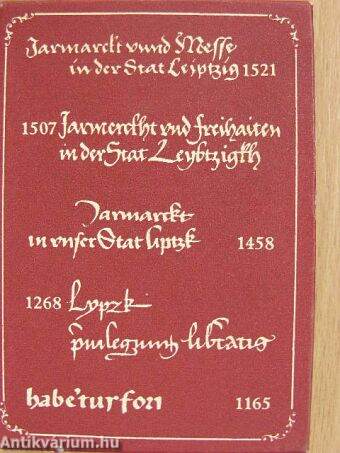 Jarmarckt vnnd Messe
in der Stat Leiptzig 1521
1507 Jarmerckht vnd freihaiten
in der Stat Leybtzigkh
Jarmarckt
in vnser Stat liptzk 1458
1268 Lypzk
p̄uilegium lib̄tatis
habe'tur fori 1165
Antikvarium.hu